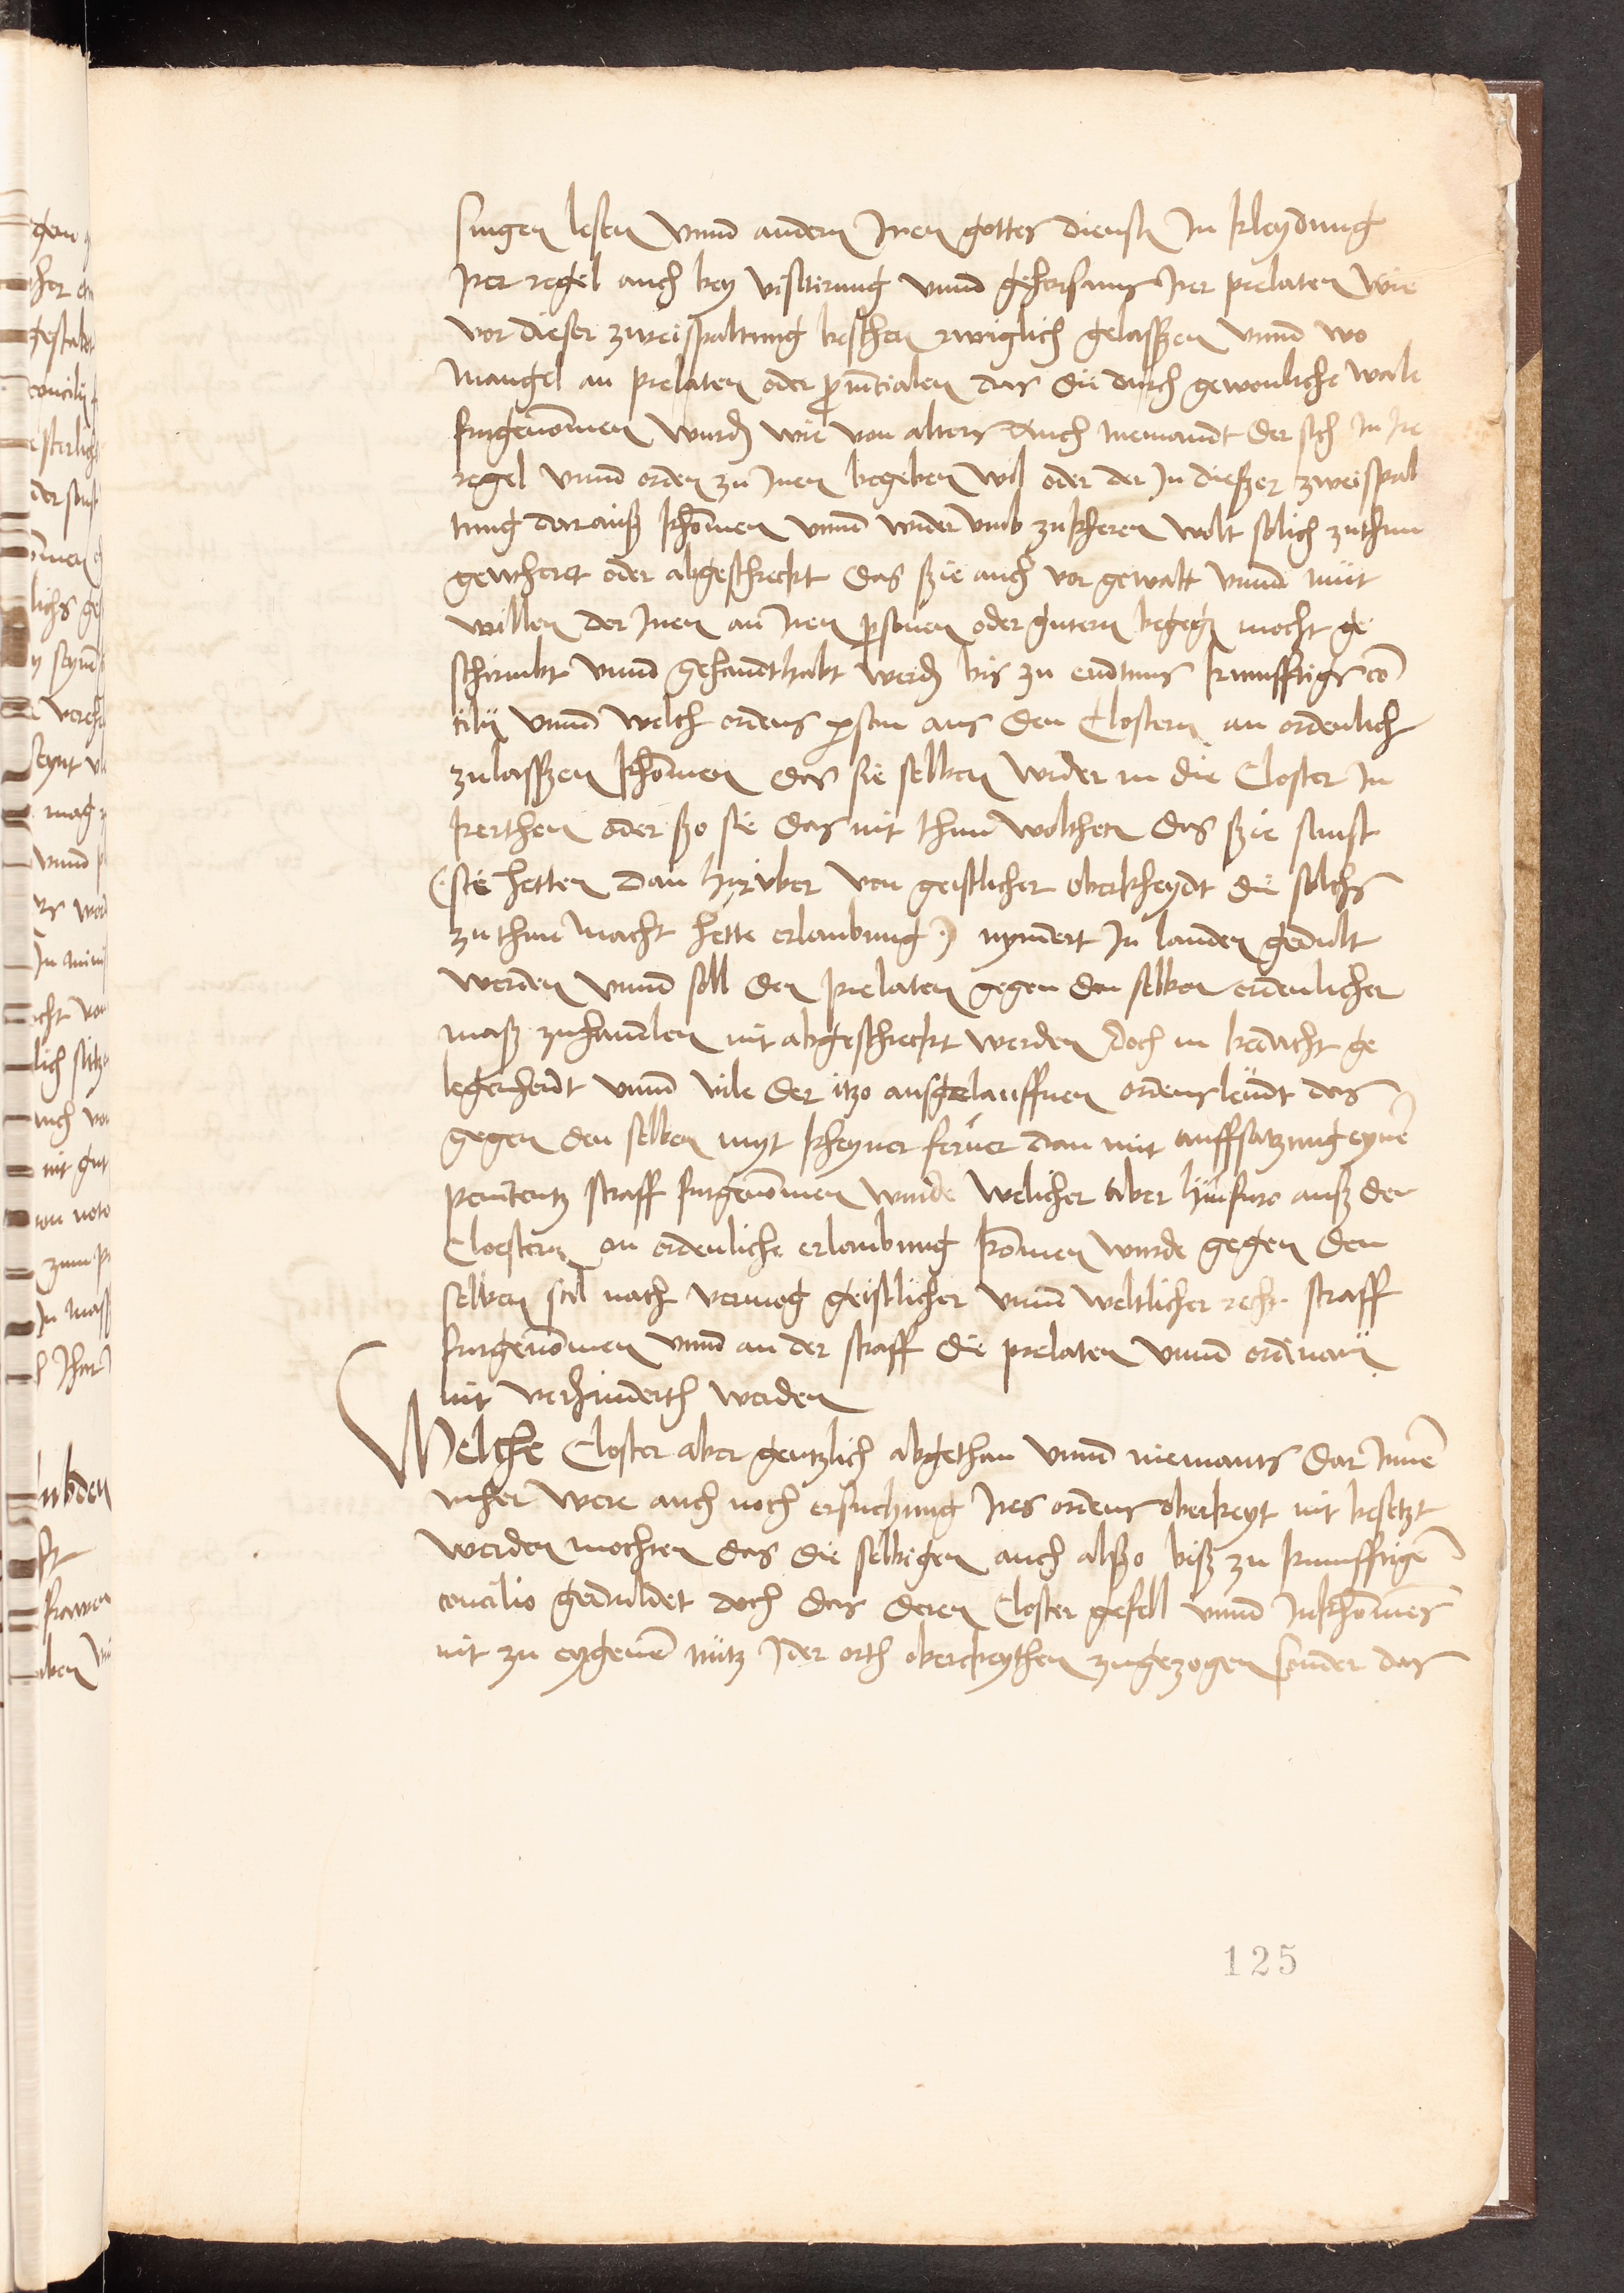 singen lesen vnnd andern Iren gottes dienst In kleydung
Irer regel auch bey visitirung vnnd gehorsams Irer prelaten wie
vor dieser zweispaltung beschen rwiglich gelasszen vnnd wo
mangel an prelaten oder prouintialen das die durch gewonliche wale
furgenommen wurden wie von alters Auch niemandt der sich In Ire
regel vnnd orden zu Inen begeben wil oder der In dieszer zweispal
tung daraus khommen vnnd wider vmb zukheren wolt solich zuthun
gewheret oder abgeschreckt das szie auch vor gewalt vnnd mut
willen der Inen an Iren personen oder gutern begegen mocht ge
schirmbt vnnd gehandthabt werden bis zu endtnus kunfftigs con
cilij vnnd welch ordens person aus den Clostern an ordenlich
zulasszen khommen das sie selben wider in die Closter In
kerthen oder szo sie das nit thun wolthen das szie sunst
(sie hetten dan hiruber von geistlicher oberkheydt die solchs
zu thun macht hette erlaubung) nyndert In landen gedult
werden vnnd soll den prelaten gegen den selben ordenlicher
masz zuhandlen nit abgeschreckt werden doch in bedacht ge
legenheydt vnnd vile der itzo ausgelauffnen ordensleudt das
gegen den selben myt kheyner ferner dan mit auffsatzung eyner
penitentz straff furgenommen wurde welicher aber hinfuro ausz den
Cloestern on ordenliche erlaubung kommen wurde gegen den
selben sol nach vermog geistlicher vnnd weltlicher recht straff
furgenommen vnnd an der straff die prelaten vnnd ordinarij
nit verhinderth werden
Welche Closter aber gentzlich abgethan vnnd niemants dar Innen
mher were auch noch ersuchung Ires ordens oberkeyt nit besetzt
werden mochten das die selbigen auch alszo bisz zu kunfftigen
concilio geduldet doch das deren Closter gefell vnnd Inkhommens
nit zu eygenem nutz Ider orth oberckeythen zugezogen sonder das
125